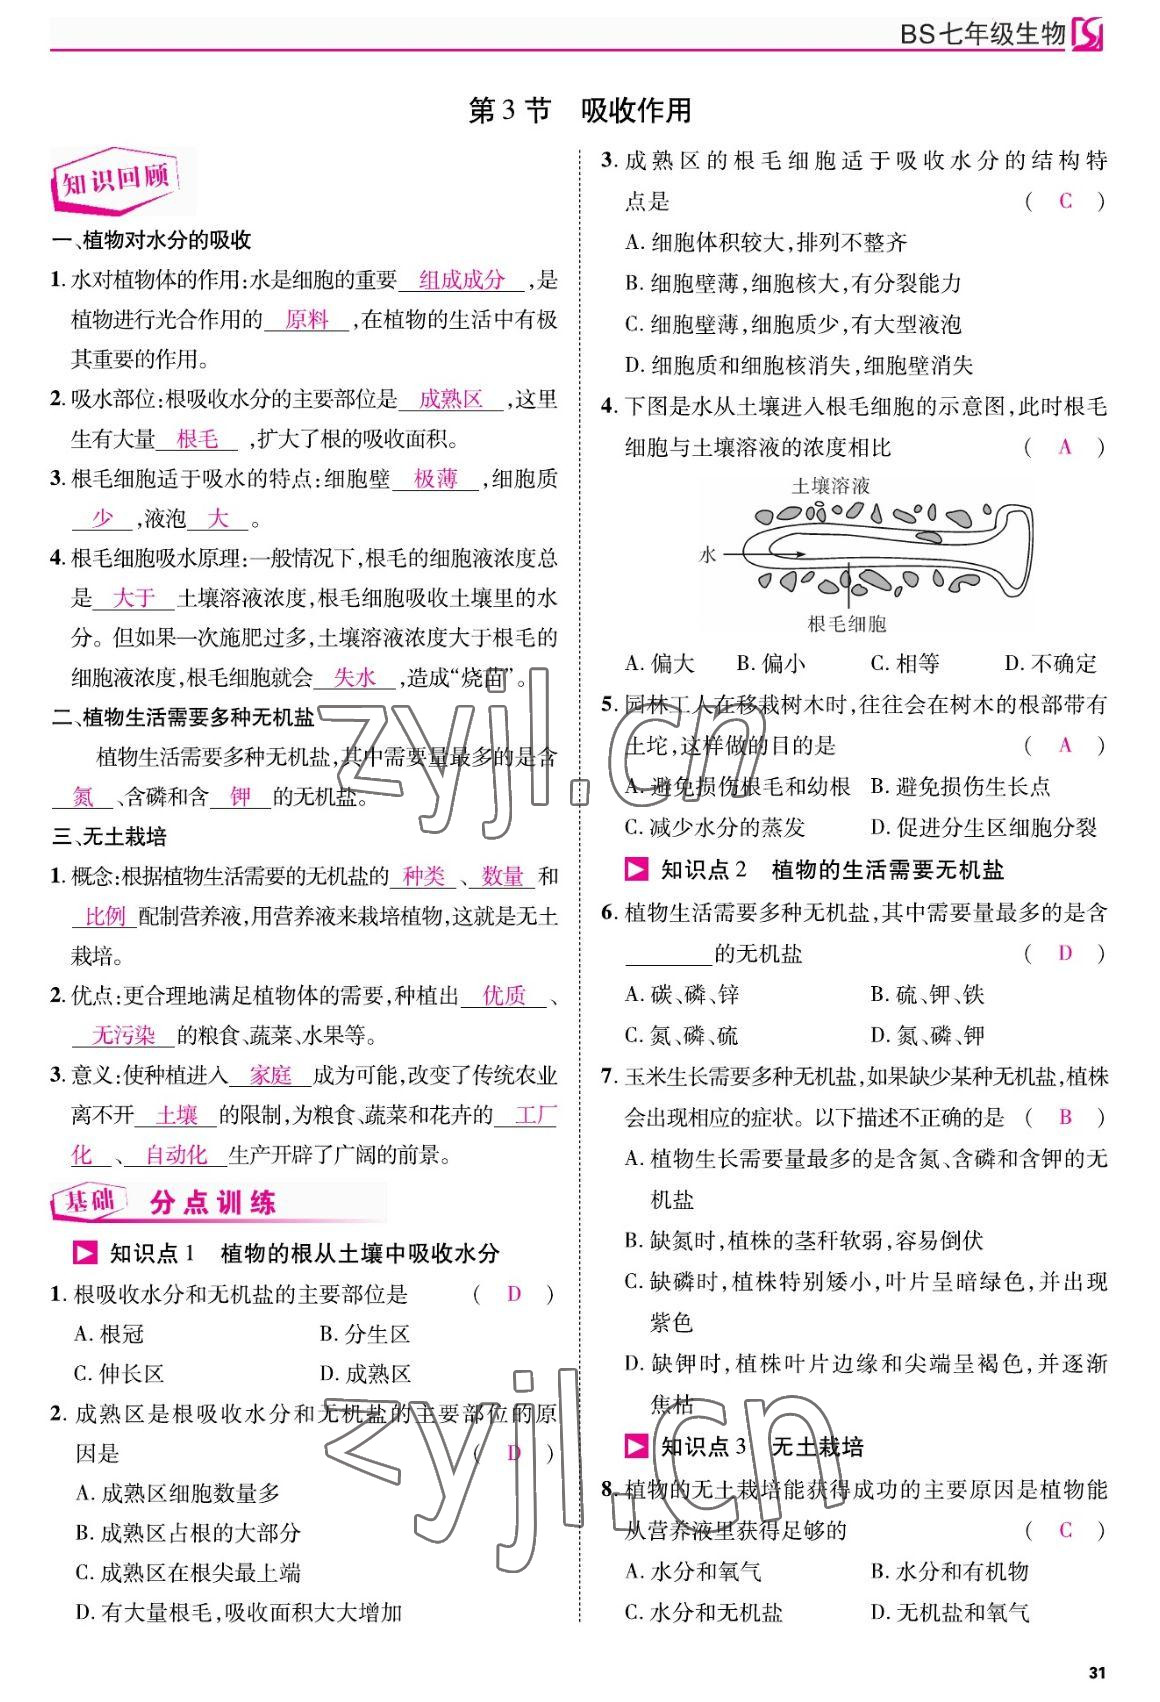 BS七年级生物
第 3 节　吸收作用
知识回顾
一、植物对水分的吸收
1. 水对植物体的作用:水是细胞的重要 组成成分 ,是
植物进行光合作用的 原料 ,在植物的生活中有极
其重要的作用。
2. 吸水部位:根吸收水分的主要部位是 成熟区 ,这里
生有大量 根毛 ,扩大了根的吸收面积。
3. 根毛细胞适于吸水的特点:细胞壁 极薄 ,细胞质
少 ,液泡 大 。
4. 根毛细胞吸水原理:一般情况下,根毛的细胞液浓度总
是 大于 土壤溶液浓度,根毛细胞吸收土壤里的水
分。但如果一次施肥过多,土壤溶液浓度大于根毛的
细胞液浓度,根毛细胞就会 失水 ,造成“烧苗”。
二、植物生活需要多种无机盐
植物生活需要多种无机盐,其中需要量最多的是含
氮 、含磷和含 钾 的无机盐。
三、无土栽培
1. 概念:根据植物生活需要的无机盐的 种类 、 数量 和
比例 配制营养液,用营养液来栽培植物,这就是无土
栽培。
2. 优点:更合理地满足植物体的需要,种植出 优质 、
无污染 的粮食、蔬菜、水果等。
3. 意义:使种植进入 家庭 成为可能,改变了传统农业
离不开 土壤 的限制,为粮食、蔬菜和花卉的 工厂
化 、 自动化 生产开辟了广阔的前景。
基础 分点训练
知识点 1　植物的根从土壤中吸收水分
1. 根吸收水分和无机盐的主要部位是 ( D )
A. 根冠 B. 分生区
C. 伸长区 D. 成熟区
2. 成熟区是根吸收水分和无机盐的主要部位的原
因是 ( D )
A. 成熟区细胞数量多
B. 成熟区占根的大部分
C. 成熟区在根尖最上端
D. 有大量根毛,吸收面积大大增加
3. 成熟区的根毛细胞适于吸收水分的结构特
点是 ( C )
A. 细胞体积较大,排列不整齐
B. 细胞壁薄,细胞核大,有分裂能力
C. 细胞壁薄,细胞质少,有大型液泡
D. 细胞质和细胞核消失,细胞壁消失
4. 下图是水从土壤进入根毛细胞的示意图,此时根毛
细胞与土壤溶液的浓度相比 ( A )
土壤溶液
水
根毛细胞
A. 偏大 B. 偏小 C. 相等 D. 不确定
5. 园林工人在移栽树木时,往往会在树木的根部带有
土坨,这样做的目的是 ( A )
A. 避免损伤根毛和幼根 B. 避免损伤生长点
C. 减少水分的蒸发 D. 促进分生区细胞分裂
知识点 2　植物的生活需要无机盐
6. 植物生活需要多种无机盐,其中需要量最多的是含
________的无机盐 ( D )
A. 碳、磷、锌 B. 硫、钾、铁
C. 氮、磷、硫 D. 氮、磷、钾
7. 玉米生长需要多种无机盐,如果缺少某种无机盐,植株
会出现相应的症状。以下描述不正确的是 ( B )
A. 植物生长需要量最多的是含氮、含磷和含钾的无
机盐
B. 缺氮时,植株的茎秆软弱,容易倒伏
C. 缺磷时,植株特别矮小,叶片呈暗绿色,并出现
紫色
D. 缺钾时,植株叶片边缘和尖端呈褐色,并逐渐
焦枯
知识点 3　无土栽培
8. 植物的无土栽培能获得成功的主要原因是植物能
从营养液里获得足够的 ( C )
A. 水分和氧气 B. 水分和有机物
C. 水分和无机盐 D. 无机盐和氧气
zyjl.cn
zyjl.cn
31